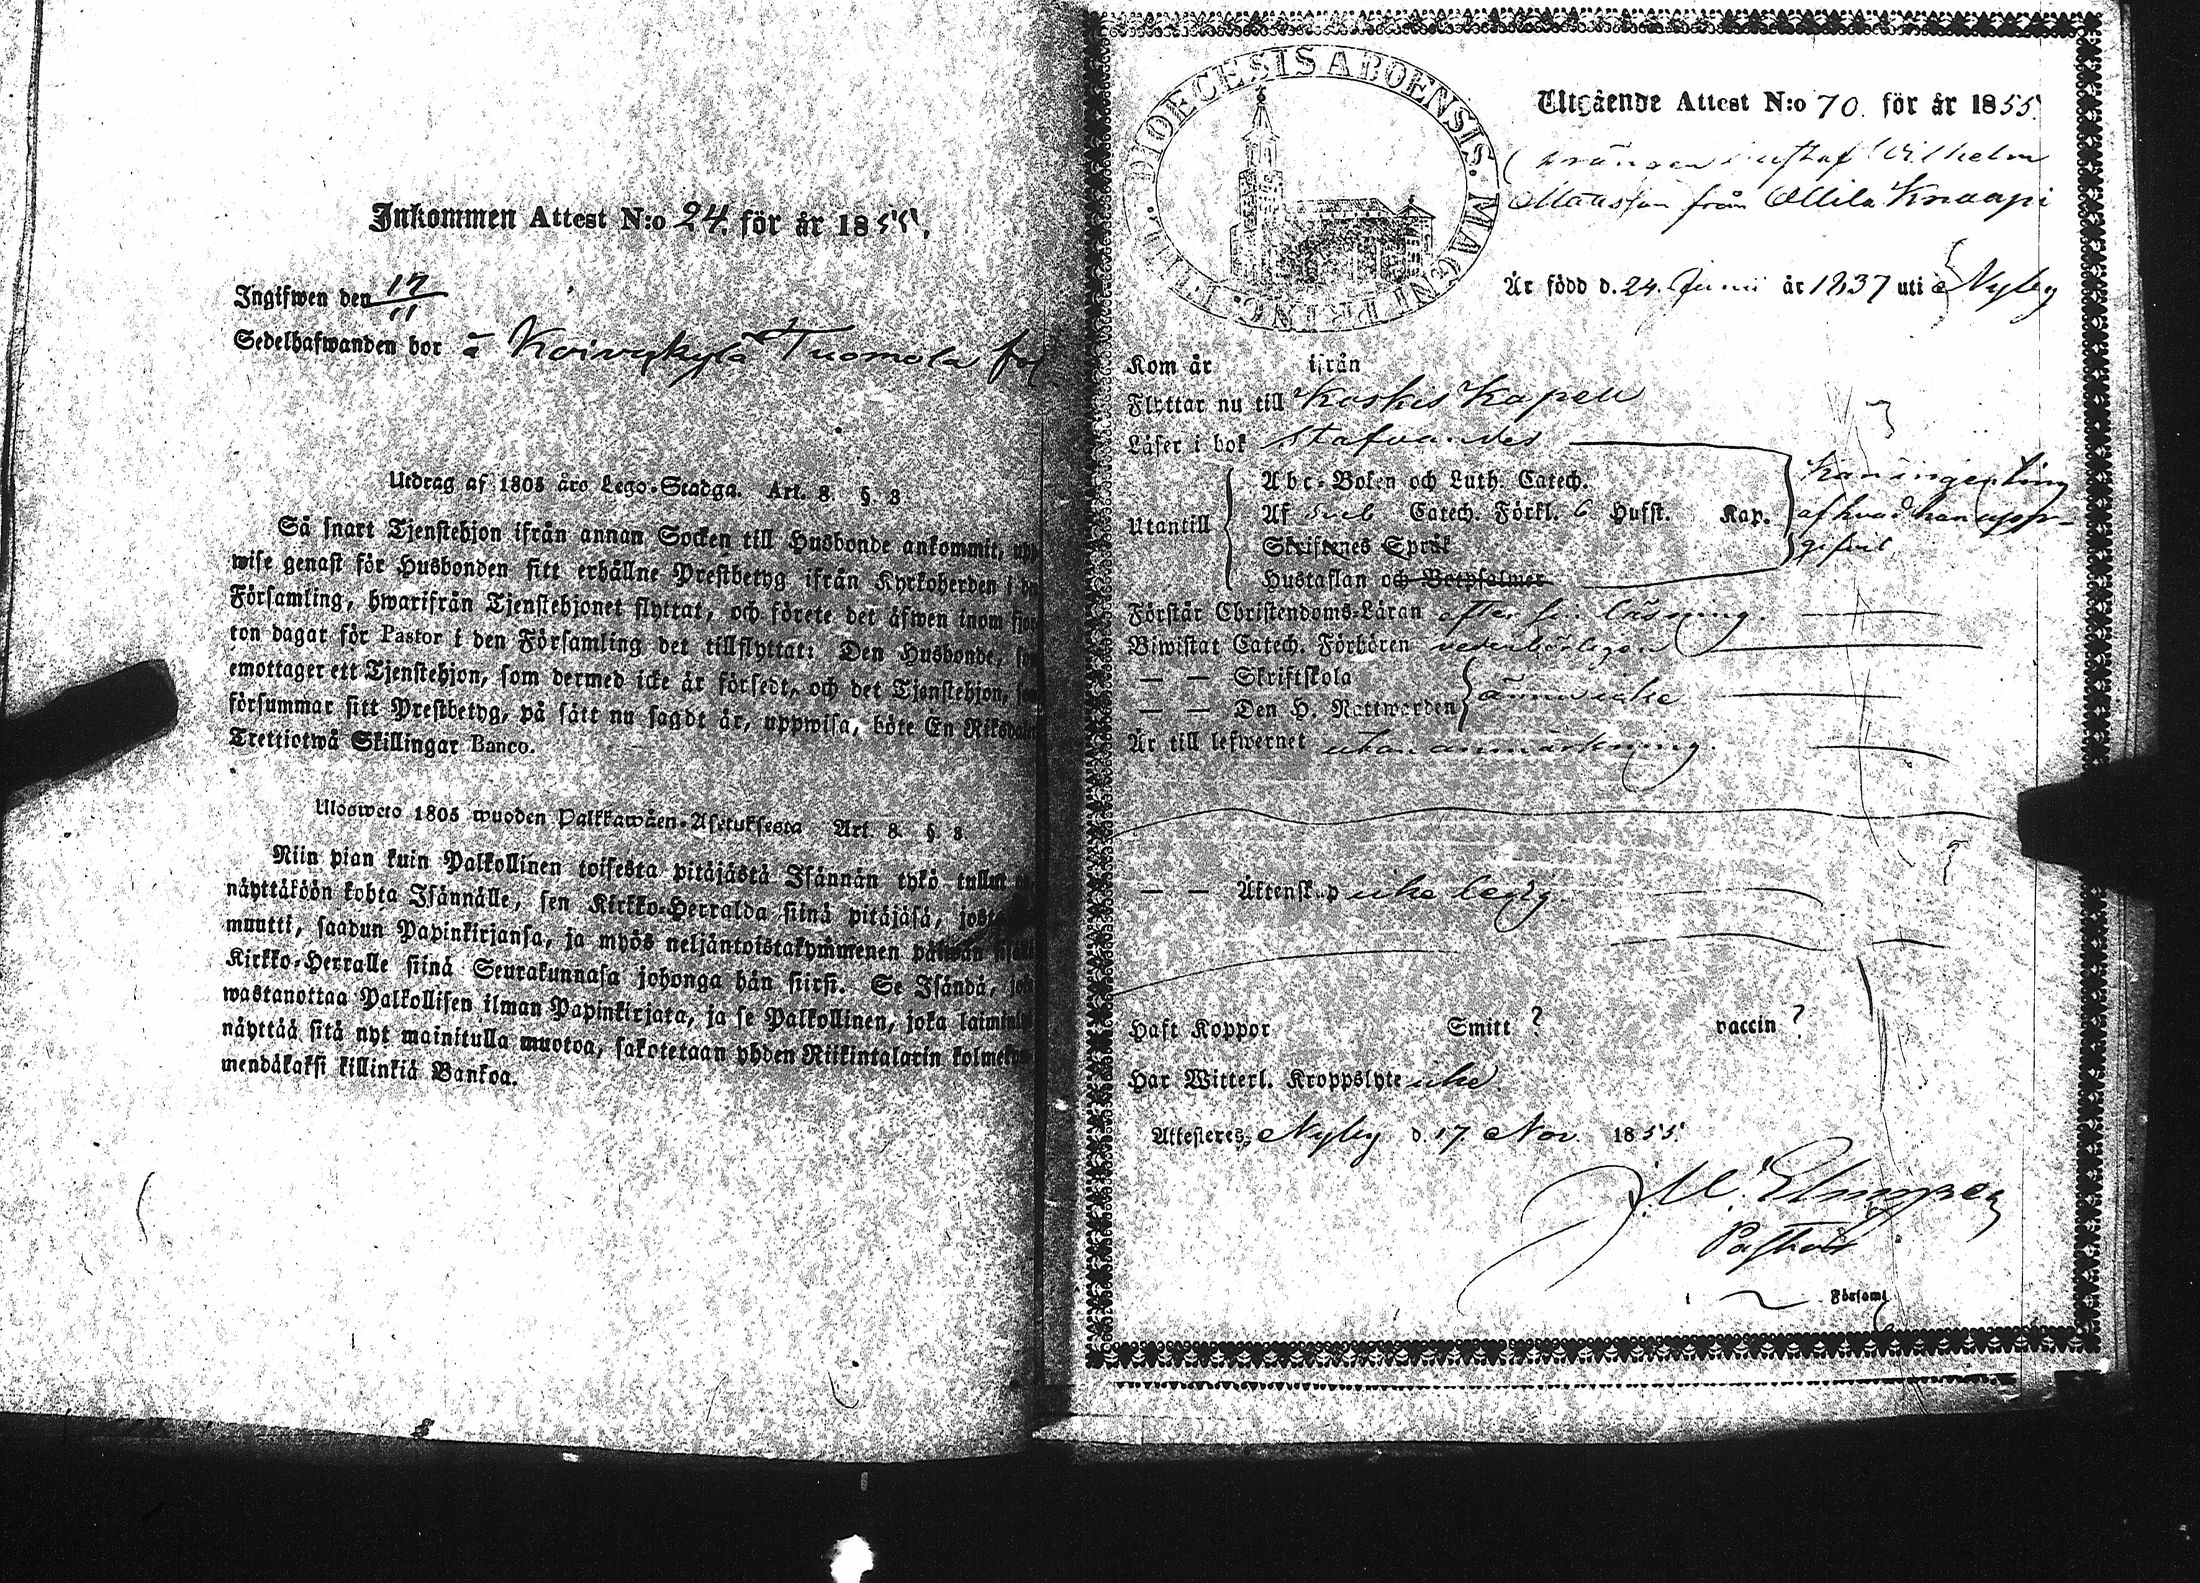 Inkommen Attest N:o 24. för år 1855.
Ingifwen den 17/11
Sedelhafwanden bor å Koivukylä Tuomola
Utdrag af 1805 års Lego-Stadga. Art. 8. §. 3
Så snart Tjenstehjon ifrån annan Socken till Husbonde ankommit,
wise genast för Husbonden sitt erhållne Prestbetyg ifrån Kyrkoherden i
Församling, hwarifrån Tjenstehjonet flyttat, och förete det äfwen inom
ton dagar för Pastor i den Församling det tillflyttat: Den Husbonde,
emottager ett Tjenstehjon, som dermed icke är försedt, och det Tjenstehjon,
försummar sitt Prestbetyg, på sätt nu sagdt är, uppwisa, böte En
Trettiotwå Skillingar Banco.
Ulosweto 1805 wuoden Palkkawäen-Asetuksesta Art. 8. §. 3.
Niin pian kuin Palkollinen toisesta pitäjästä Isännän tykö tullut
näyttäköön kohta Isännälle, sen Kirkko-Herralda siinä pitäjäsä,
muutti, saadun Papinkirjansa, ja myös neljäntoistakymmenen
Kirkko-Herralle siinä Seurakunnasa johonga hän siirsi. Se Isändä,
wastanottaa Palkollisen ilman Papinkirjata, ja se Palkollinen, joka
näyttää sitä nyt mainitulla muotoa, sakotetaan yhden Riikintalarin
mendäkaksi killinkiä Bankoa.
DIOECESIS ABOENSIS. MAGNI PRINC.
Utgående Attest N:o 70. för år 1855.
Drängen Gustaf Wilhelm
Mattsson från Ollila Knaapi
Är född d. 24. Junii år 1837 uti Nyby
Kom år ifrån
Flyttar nu till Koskis Kapell
Läser i bok stafvandes
Utantill
Abc-Boken och Luth. Catech.
Af Sveb Catech. Förkl. 6 Hufst. Kap.
Skriftenes Språk
Hustaflan och Botpsalmer
kan ingenting
af hvad han upp-
gifvit
Förstår Christendoms-Läran efter sin läsning.
Biwistat Catech. Förhören vederbörligen
— — Skriftskola
— — Den H. Nattwarden
ännu icke
Är till lefwernet utan anmärkning.
— — Äktenskap icke ledig.
Haft Koppor Smitt ? vaccin ?
Har Witterl. Kroppslyte icke
Attesteres, Nyby d. 17 Nov. 1855.
Pastor
Församl.